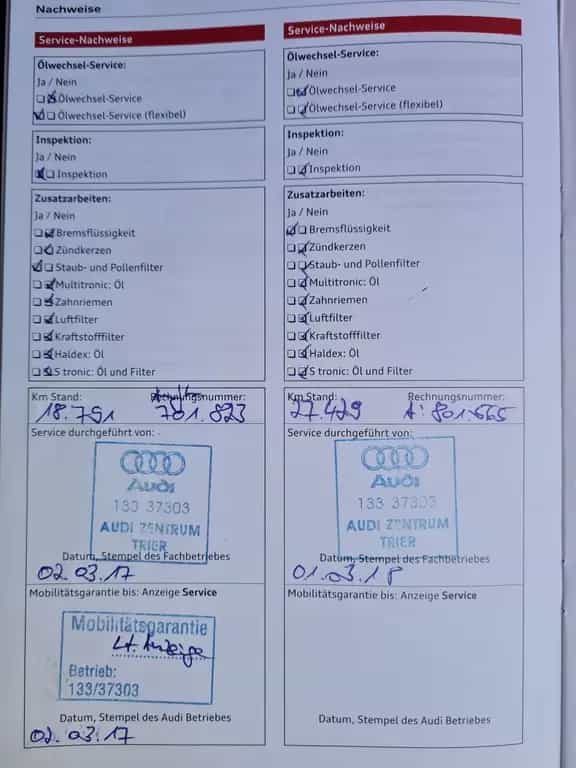 Nachweise
Service-Nachweise
Ölwechsel-Service:
Ja / Nein
Ölwechsel-Service
Ölwechsel-Service (flexibel)
Inspektion:
Ja / Nein
Inspektion
Zusatzarbeiten:
Ja / Nein
Bremsflüssigkeit
Zündkerzen
Staub- und Pollenfilter
Multitronic: Öl
Zahnriemen
Luftfilter
Kraftstofffilter
Haldex: Öl
S tronic: Öl und Filter
Km Stand: Rechnungsnummer:
18.791 701.823
Service durchgeführt von:
Audi
133 37303
AUDI ZENTRUM
TRIER
Datum, Stempel des Fachbetriebes
02.03.17
Mobilitätsgarantie bis: Anzeige Service
Mobilitätsgarantie
Lt. Anzeige
Betrieb:
133/37303
Datum, Stempel des Audi Betriebes
02.03.17
Service-Nachweise
Ölwechsel-Service:
Ja / Nein
Ölwechsel-Service
Ölwechsel-Service (flexibel)
Inspektion:
Ja / Nein
Inspektion
Zusatzarbeiten:
Ja / Nein
Bremsflüssigkeit
Zündkerzen
Staub- und Pollenfilter
Multitronic: Öl
Zahnriemen
Luftfilter
Kraftstofffilter
Haldex: Öl
S tronic: Öl und Filter
Km Stand: Rechnungsnummer:
27.429 A: 801.665
Service durchgeführt von:
Audi
133 37303
AUDI ZENTRUM
TRIER
Datum, Stempel des Fachbetriebes
01.03.18
Mobilitätsgarantie bis: Anzeige Service
Datum, Stempel des Audi Betriebes